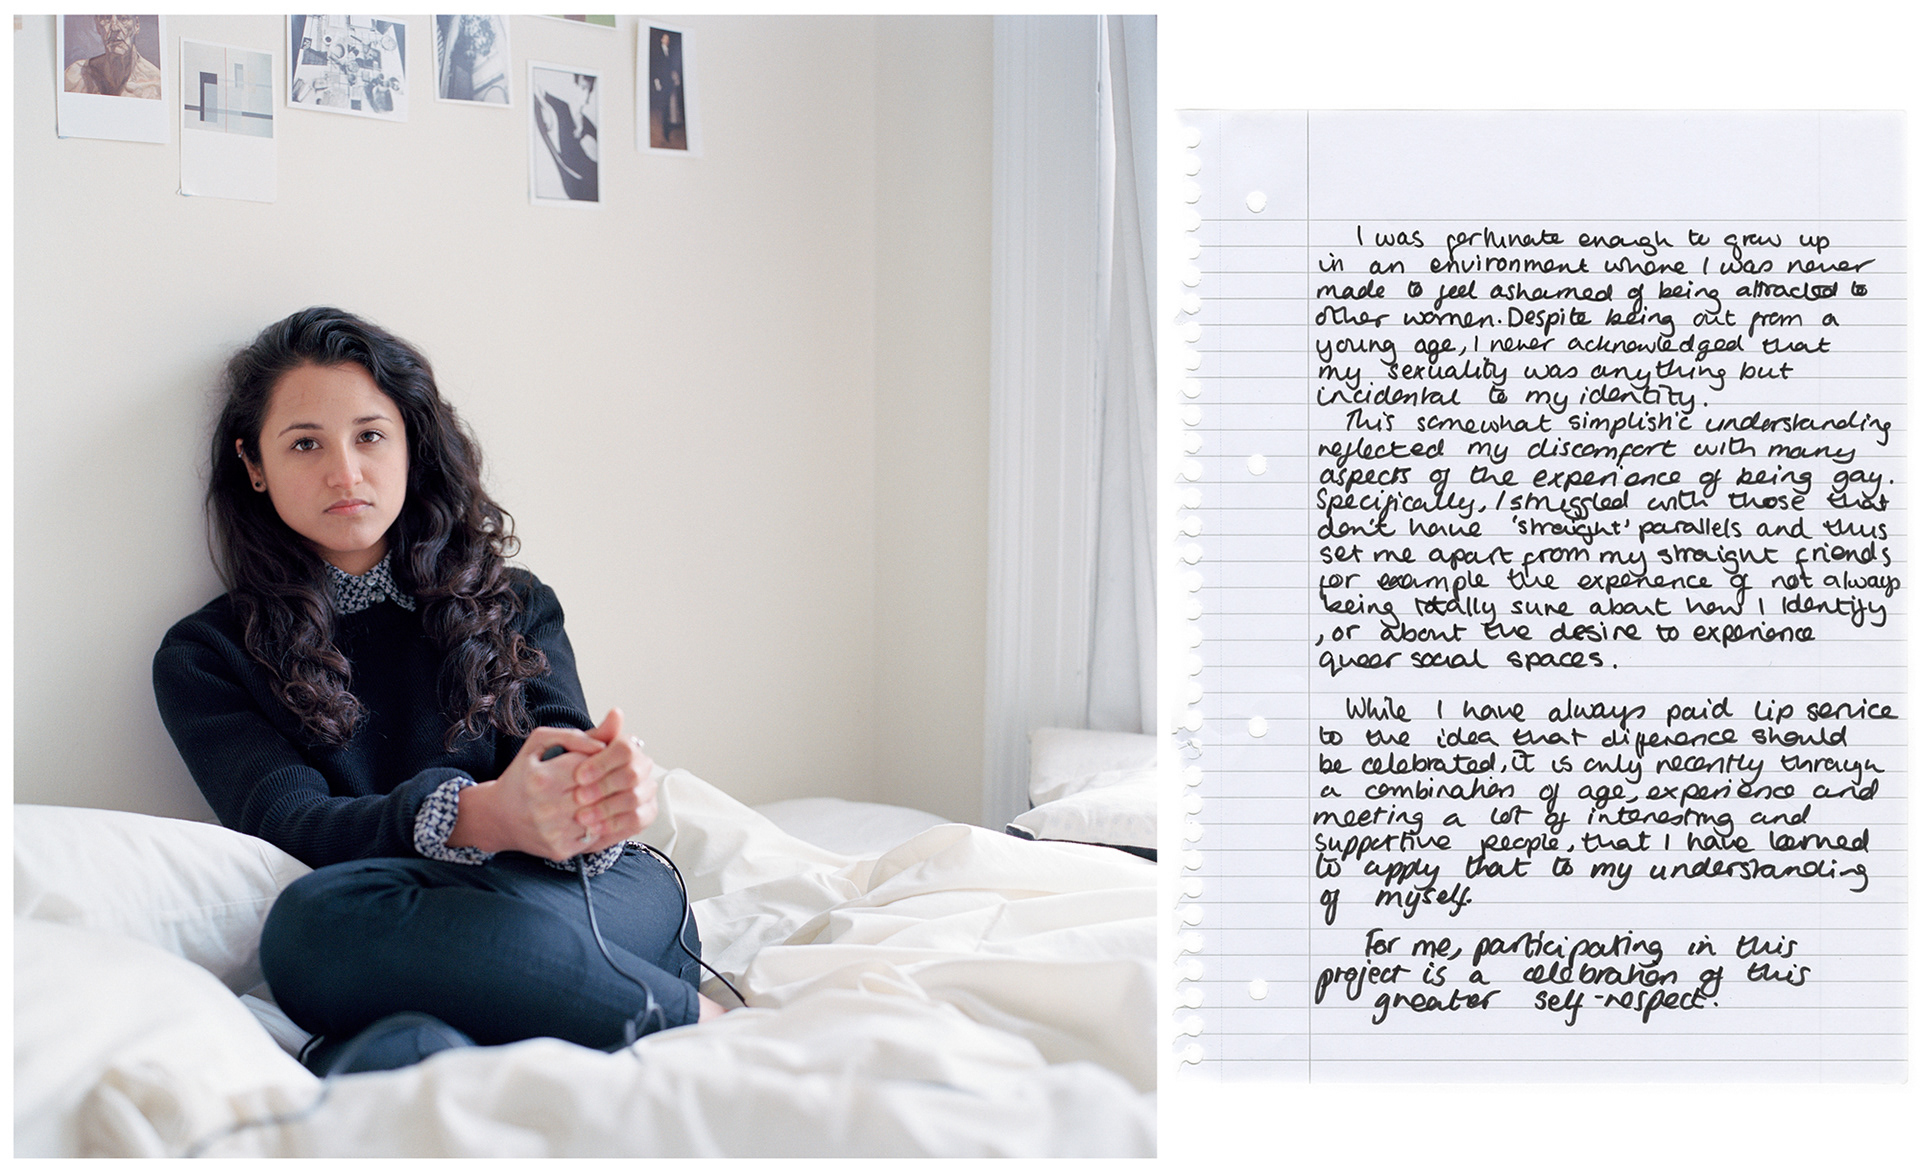 I was fortunate enough to grow up
in an environment where I was never
made to feel ashamed of being attracted to
other women. Despite being out from a
young age, I never acknowledged that
my sexuality was anything but
incidental to my identity.
This somewhat simplistic understanding
reflected my discomfort with many
aspects of the experience of being gay.
Specifically, I struggled with those that
don't have 'straight' parallels and thus
set me apart from my straight friends
for example the experience of not always
being totally sure about how I identify
, or about the desire to experience
queer social spaces.
While I have always paid lip service
to the idea that difference should
be celebrated, it is only recently through
a combination of age, experience and
meeting a lot of interesting and
supportive people, that I have learned
to apply that to my understanding
of myself.
For me, participating in this
project is a celebration of this
greater self-respect.